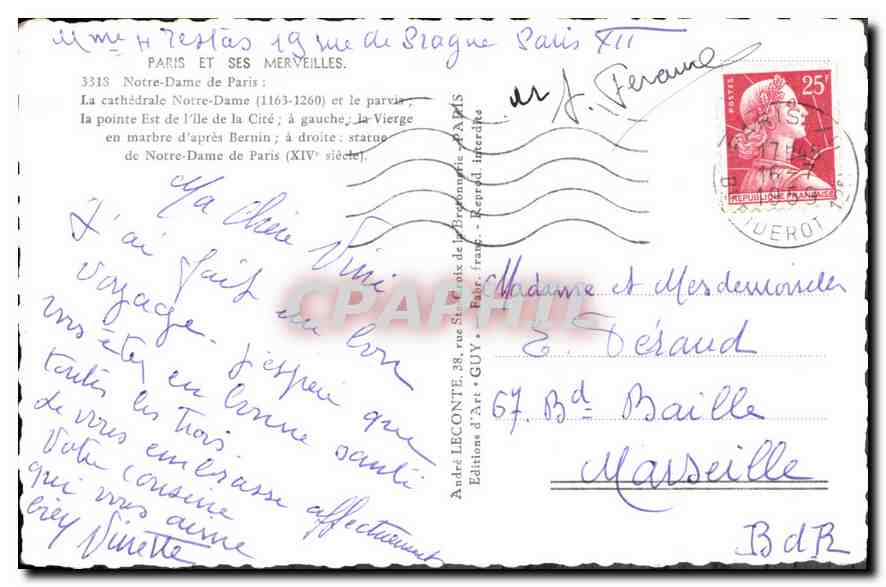 Mme H Testas 19 rue de Prague Paris XII
PARIS ET SES MERVEILLES.
3313 Notre-Dame de Paris :
La cathédrale Notre-Dame (1163-1260) et le parvis ;
la pointe Est de l'Ile de la Cité ; à gauche : la Vierge
en marbre d'après Bernin ; à droite : statue
de Notre-Dame de Paris (XIVe siècle).
Ma Chère Vini
J'ai fait un bon
voyage. J'espère que
vous êtes en bonne santé
toutes les trois
Je vous embrasse affectueusement
Votre Cousine
qui vous aime
bien Vinette
André LECONTE, 38, rue Ste-Croix de la Bretonnerie - PARIS
Editions d'Art "GUY" - Fabr. franç. - Reprod. interdite
POSTES
25F
REPUBLIQUE FRANÇAISE
PARIS
17H
16-7
195
DIDEROT
Madame et Mesdemoiselles
E. Féraud
67. Bd Baille
Marseille
BdR
CPAPHIL